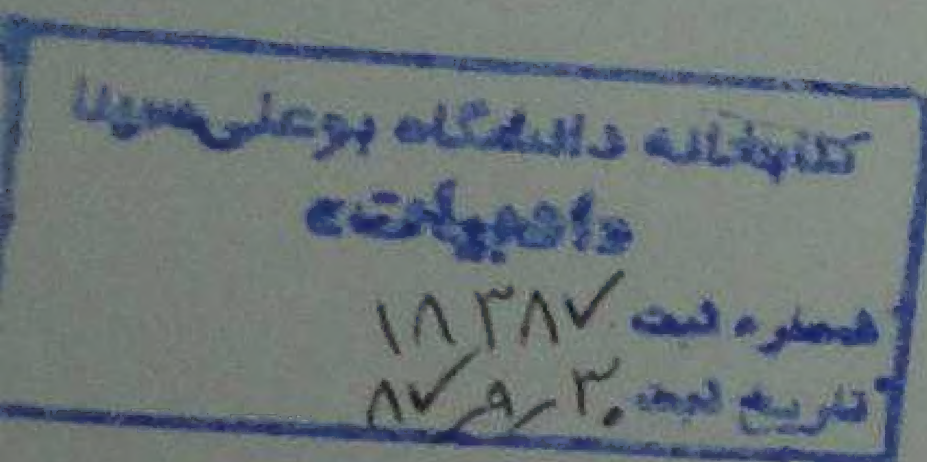 کتابخانه دانشگاه بوعلی سینا
«ادبیات»
شماره ثبت ۱۸۳۸۷
تاریخ ثبت ۸۷٫۹٫۳۰